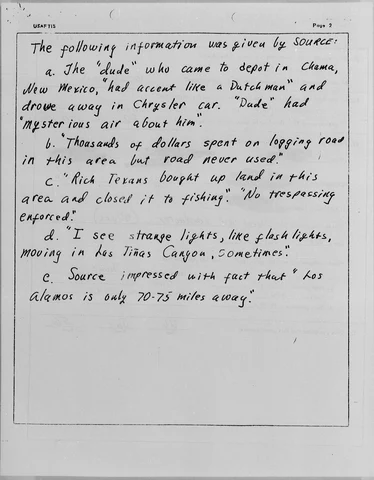 USAF 112 Page 2
The following information was given by SOURCE:
a. The "dude" who came to depot in Chama,
New Mexico, "had accent like a Dutchman" and
drove away in Chrysler car. "Dude" had
"mysterious air about him".
b. "Thousands of dollars spent on logging road
in this area but road never used."
c. "Rich Texans bought up land in this
area and closed it to fishing". "No trespassing
enforced."
d. "I see strange lights, like flash lights,
moving in Los Tiñas Canyon, sometimes".
e. Source impressed with fact that "Los
Alamos is only 70-75 miles away".